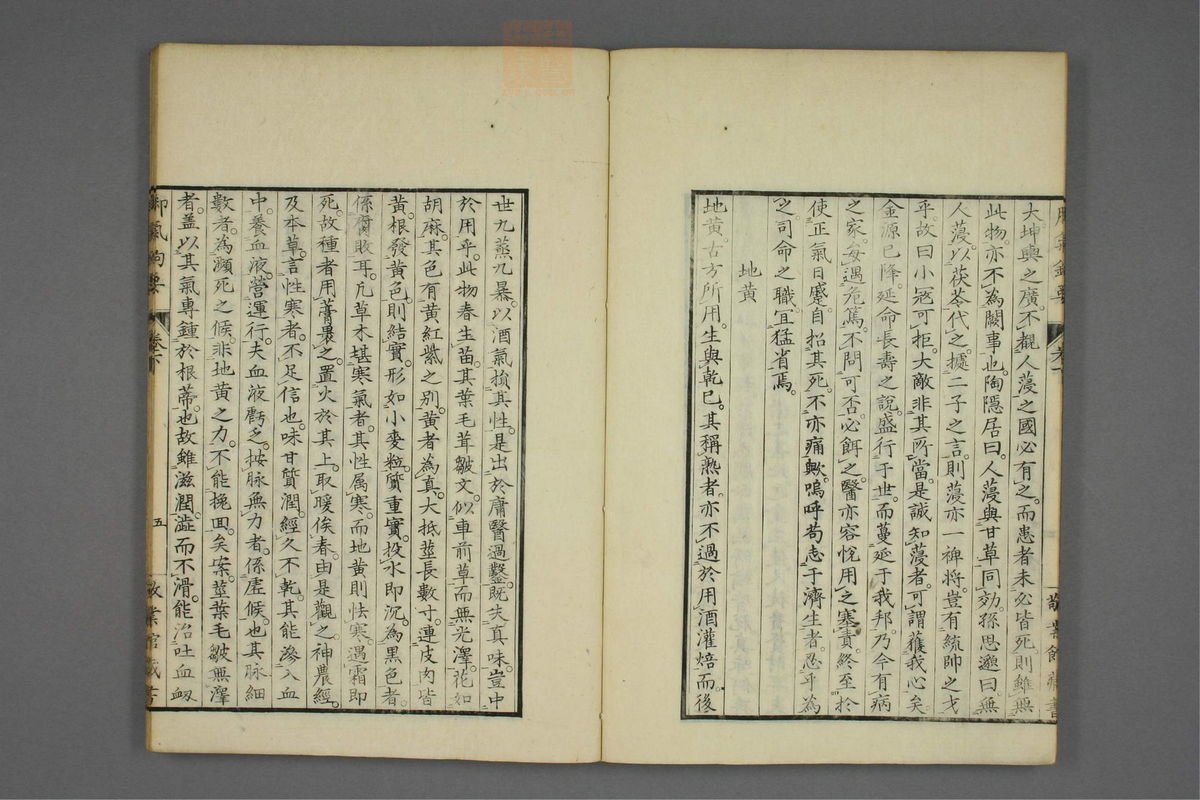 大坤輿之廣不覩人薓之國必有之而患者未必皆死則雖無
此物亦不為闕事也陶隱居曰人薓與甘草同効孫思邈曰無
人薓以茯苓代之據二子之言則薓亦一裨將豈有統帥之才
乎故曰小冦可拒大敵非其所當是誠知薓者可謂獲我心矣
金源已降延命長壽之說盛行于世而蔓延于我邦乃今有病
之家每遇危篤不問可否必餌之醫亦容悅用之塞責終至於
使正氣日蹙自招其死不亦痛歟嗚呼苟志于濟生者忍乎為
之司命之職冝猛省焉
地黄
地黄古方所用生與乾已其稱熟者亦不過於用酒灌焙而後
世九蒸九暴以酒氣損其性是出於庸醫過鑿既失真味豈中
於用乎此物春生苗其葉毛茸皺文似車前草而無光澤花如
胡麻其色有黄紅紫之別黄者為真大抵莖長數寸連皮肉皆
黄根發黄色則結實形如小麥粒質重實投水即沉為黒色者
係腐敗耳凡草木堪寒氣者其性属寒而地黄則怯寒遇霜即
死故種者用蓐裹之置火於其上取暖俟春由是觀之神農經
及本草言性寒者不足信也味甘質潤經久不乾其能滲入血
中養血液營運行夫血液虧乏按脉無力者係虛候也其脉細
數者為瀕死之候非地黄之力不能挽回矣案莖葉毛皺無澤
者盖以其氣專鍾於根蒂也故雖滋潤澁而不滑能治吐血衂
卷下
五